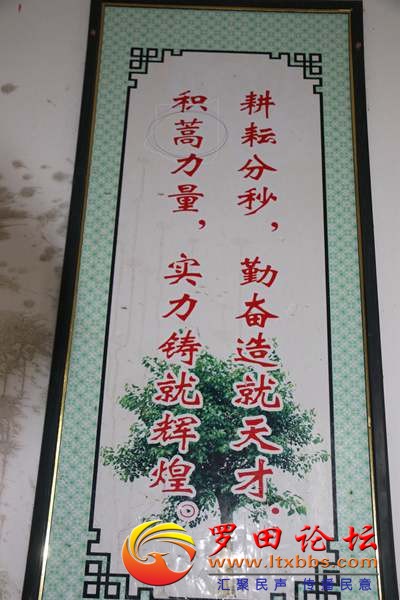 耕耘分秒，勤奋造就天才.
积蒿力量，实力铸就辉煌。
罗田论坛
www.ltxbbs.com
汇聚民声 传播民意